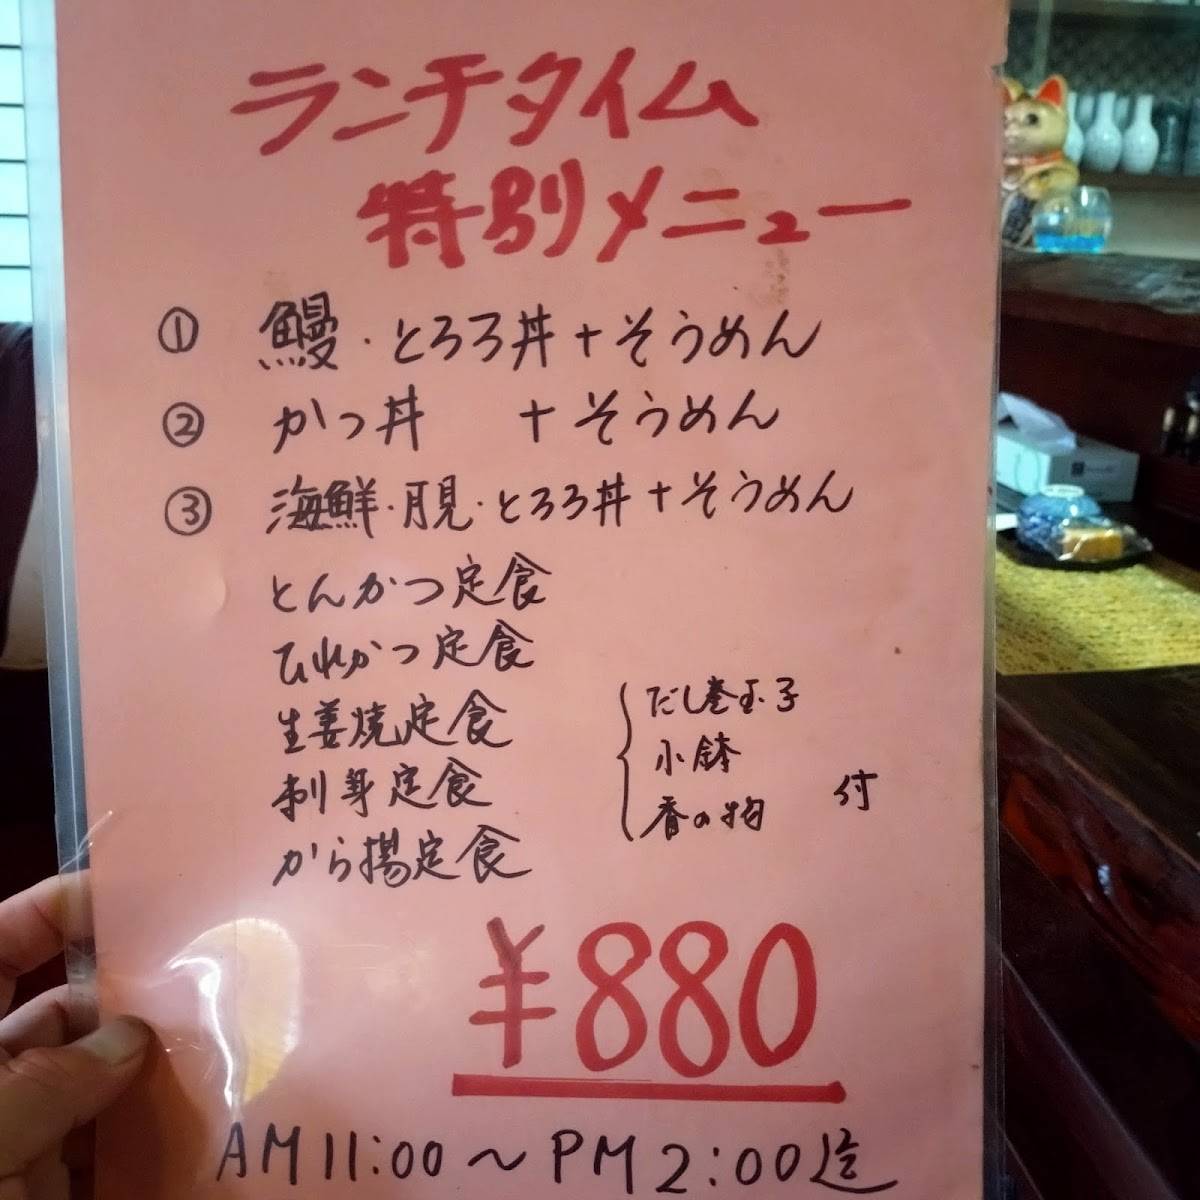 ランチタイム
特別メニュー
① 鰻・とろろ丼+そうめん
② かつ丼 +そうめん
③ 海鮮・月見・とろろ丼+そうめん
とんかつ定食
ひれかつ定食
生姜焼定食
刺身定食
から揚定食
だし巻玉子
小鉢
香の物
付
¥880
AM11:00～PM2:00迄